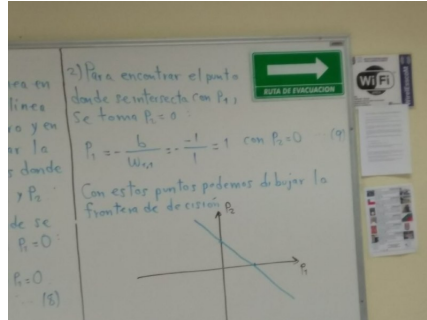 nea en
línea
ra y en
ar la
s donde
y P₂
de se
P₁=0:
P₁=0
... (8)
2) Para encontrar el punto
donde se intersecta con P₁,
se toma P₂=0:
P₁ = - b/W₁,₁ = - -1/1 = 1 con P₂=0 ...(9)
Con estos puntos podemos dibujar la
frontera de decisión
P₂
P₁
RUTA DE EVACUACIÓN
WiFi